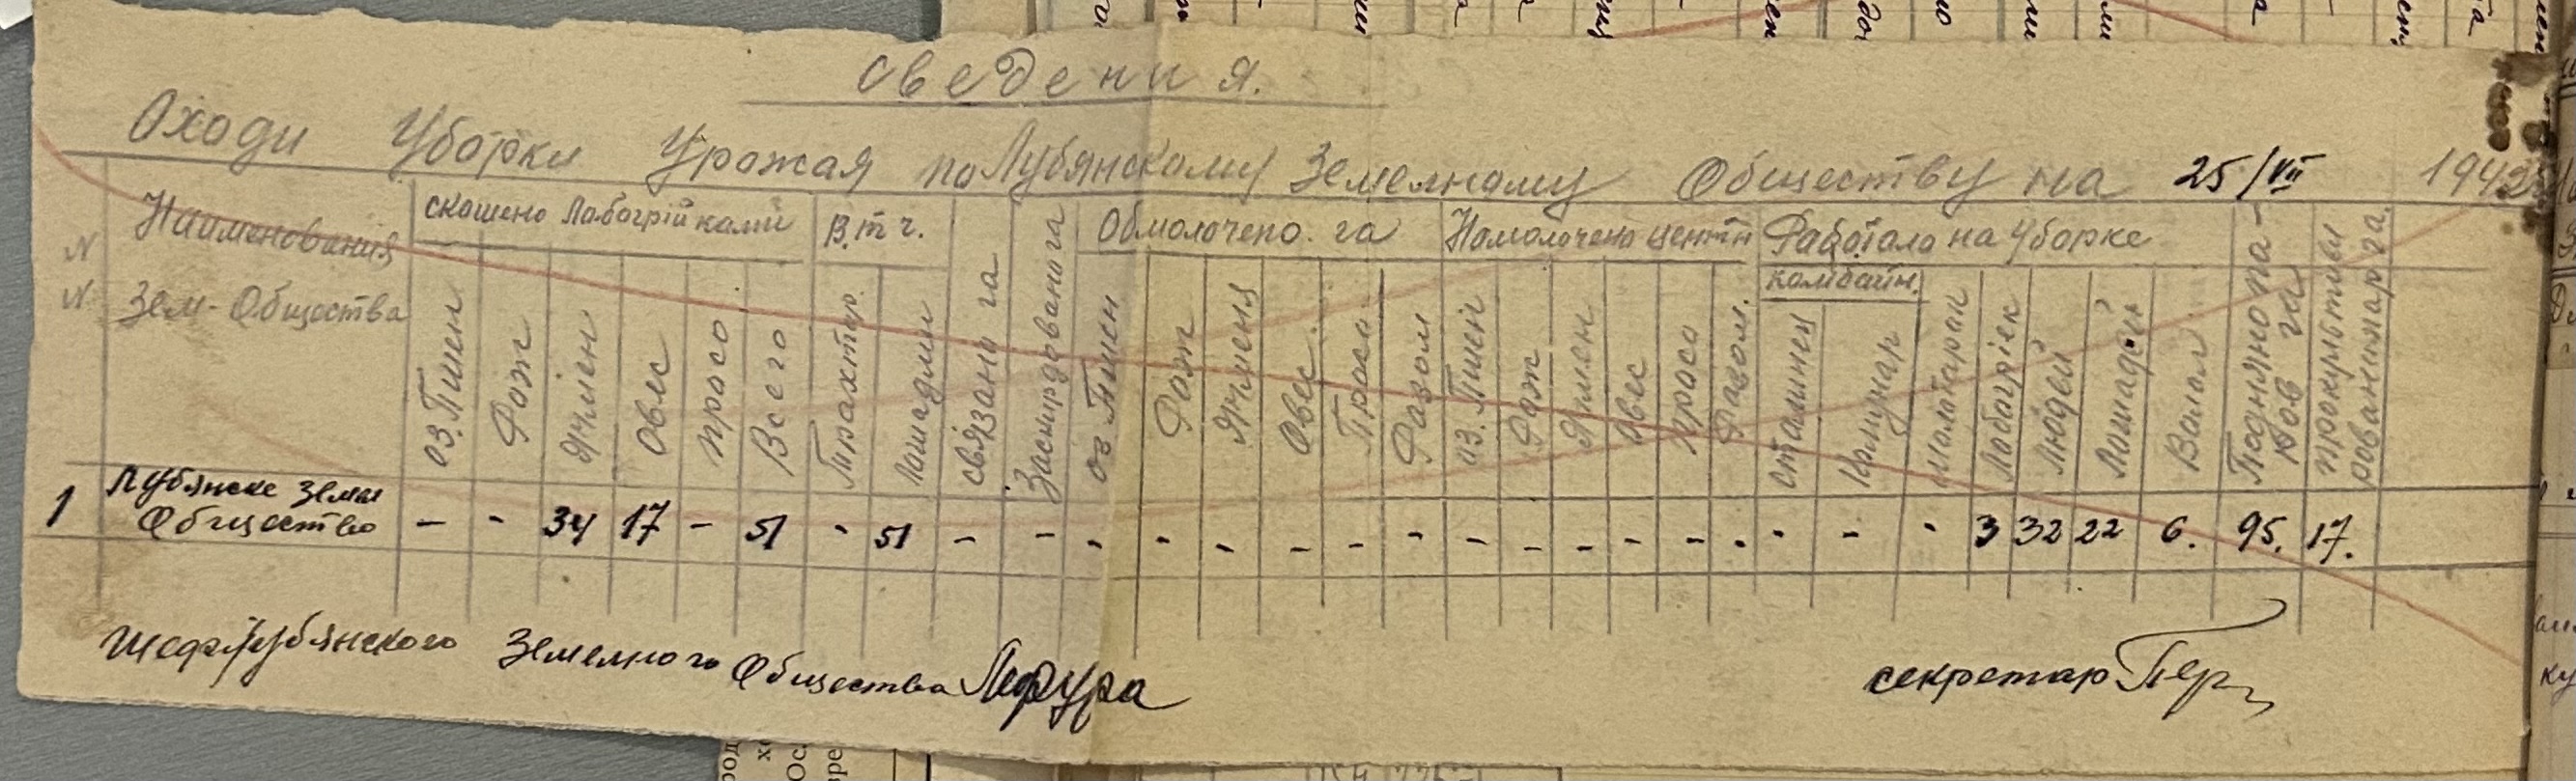 Сведения.
Оходи Уборки Урожая по Лубянскому Земелному Обществу на 25/VII 1942
N N Наименования Зем-Общества
скошено Лабогрійками
В.т ч.
связано га
Заскирдовано га
Обмолочено. га
Намолочено центн
Работало на уборке
комбайн.
Подняно паров га
прокультивировано пара га.
оз. Пшен Рож Ячмен Овес просо Всего
Трахтор Лошадми
оз Пшен Рож Ячменя Овес. Проса Разом
оз. Пшен Рож Ячмен Овес Проса Разом.
Сталинец Комунар
молотарок Лабогріек людей Лошадей Волов
1 Лубянске Земел Общество - - 34 17 - 51 - 51 - - - - - - - - - - - - - - - - - 3 32 22 6. 95. 17.
Шеф Лубянского Земелного Общества
секретар